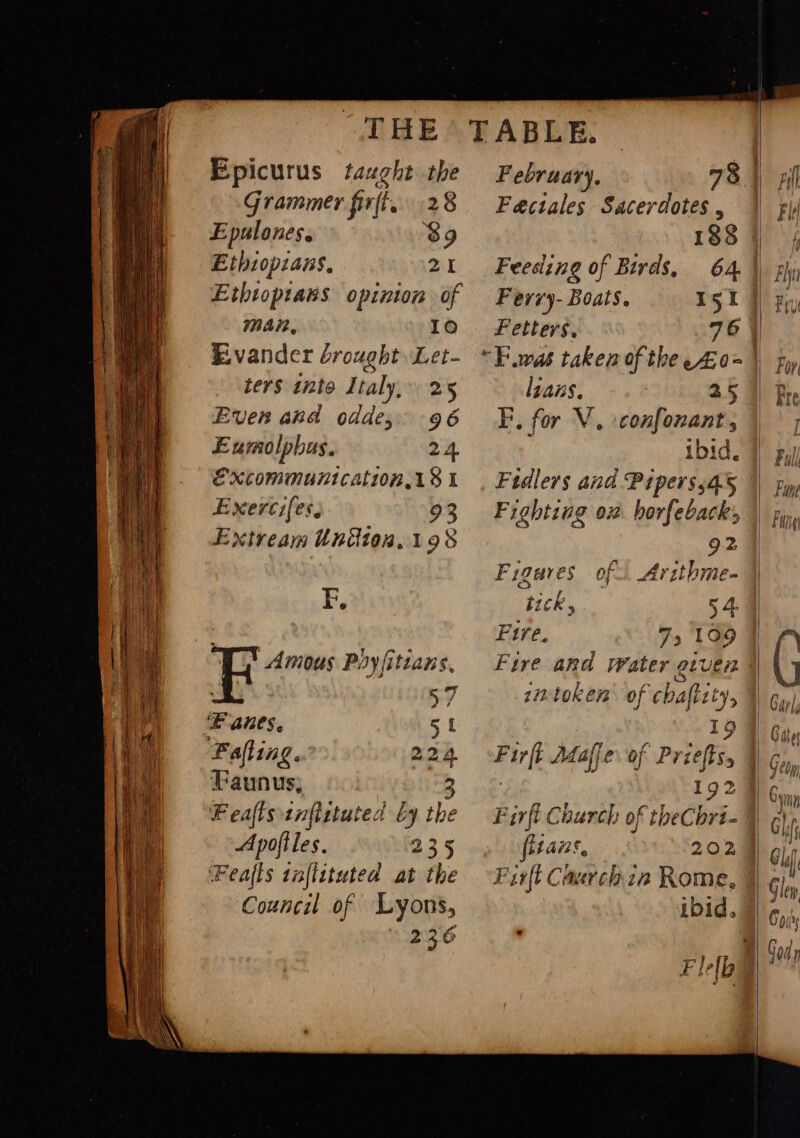 THE TABLE.
Epicurus taught the
Grammer firſt. 28
Epulones. 89
Ethiopians. 21
Ethiopians opinion of
man, 10
Evander brought Let-
ters into Italy, 25
Even and odde, 96
Eumolphus. 24
Excommunication, 181
Exerciſes, 93
Extream Unction, 198
F.
FAmous Phyſitians,
57
Fanes. 51
Faſting. 224
Faunus, 3
Feaſts inſtituted by the
Apoſtles. 235
Feaſts inſtituted at the
Council of Lyons,
236
February. 78
Fæciales Sacerdotes,
188
Feeding of Birds, 64
Ferry-Boats. 151
Fetters. 76
F. was taken of the Æo-
lians. 25
F. for V. conſonant,
ibid.
Fidlers and Pipers, 45
Fighting on horſeback,
92
Figures of Arithme-
tick, 54
Fire. 7, 109
Fire and water given
in token of chaſtity,
19
Firſt Maſſe of Prieſts,
192
Firſt Church of the Chri-
ſtians, 202
Firſt Church in Rome,
ibid.
Fleſh
G